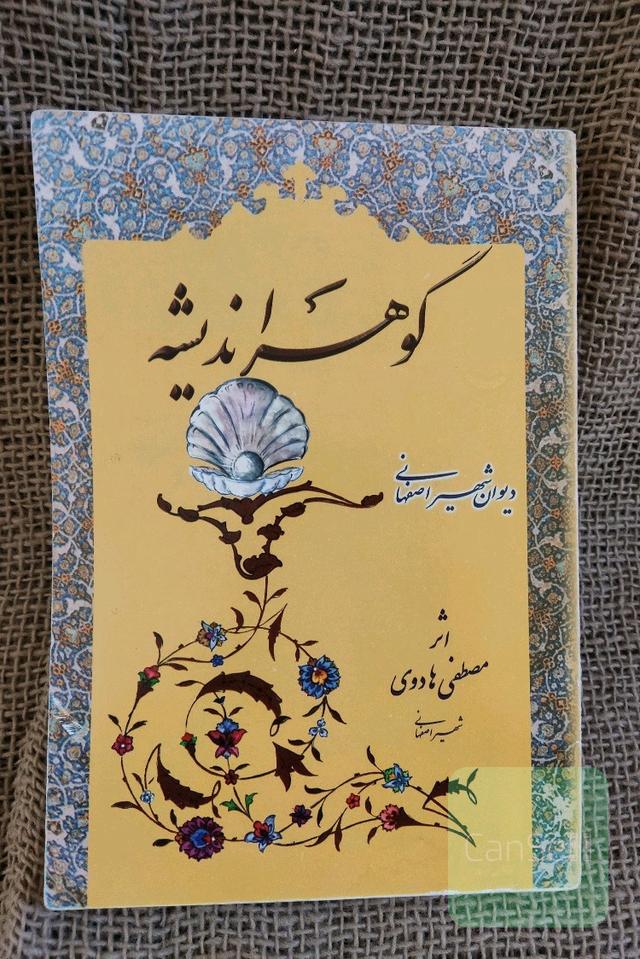 گوهر اندیشه
دیوان شهیر اصفهانی
اثر
مصطفی هادوی
شهیر اصفهانی